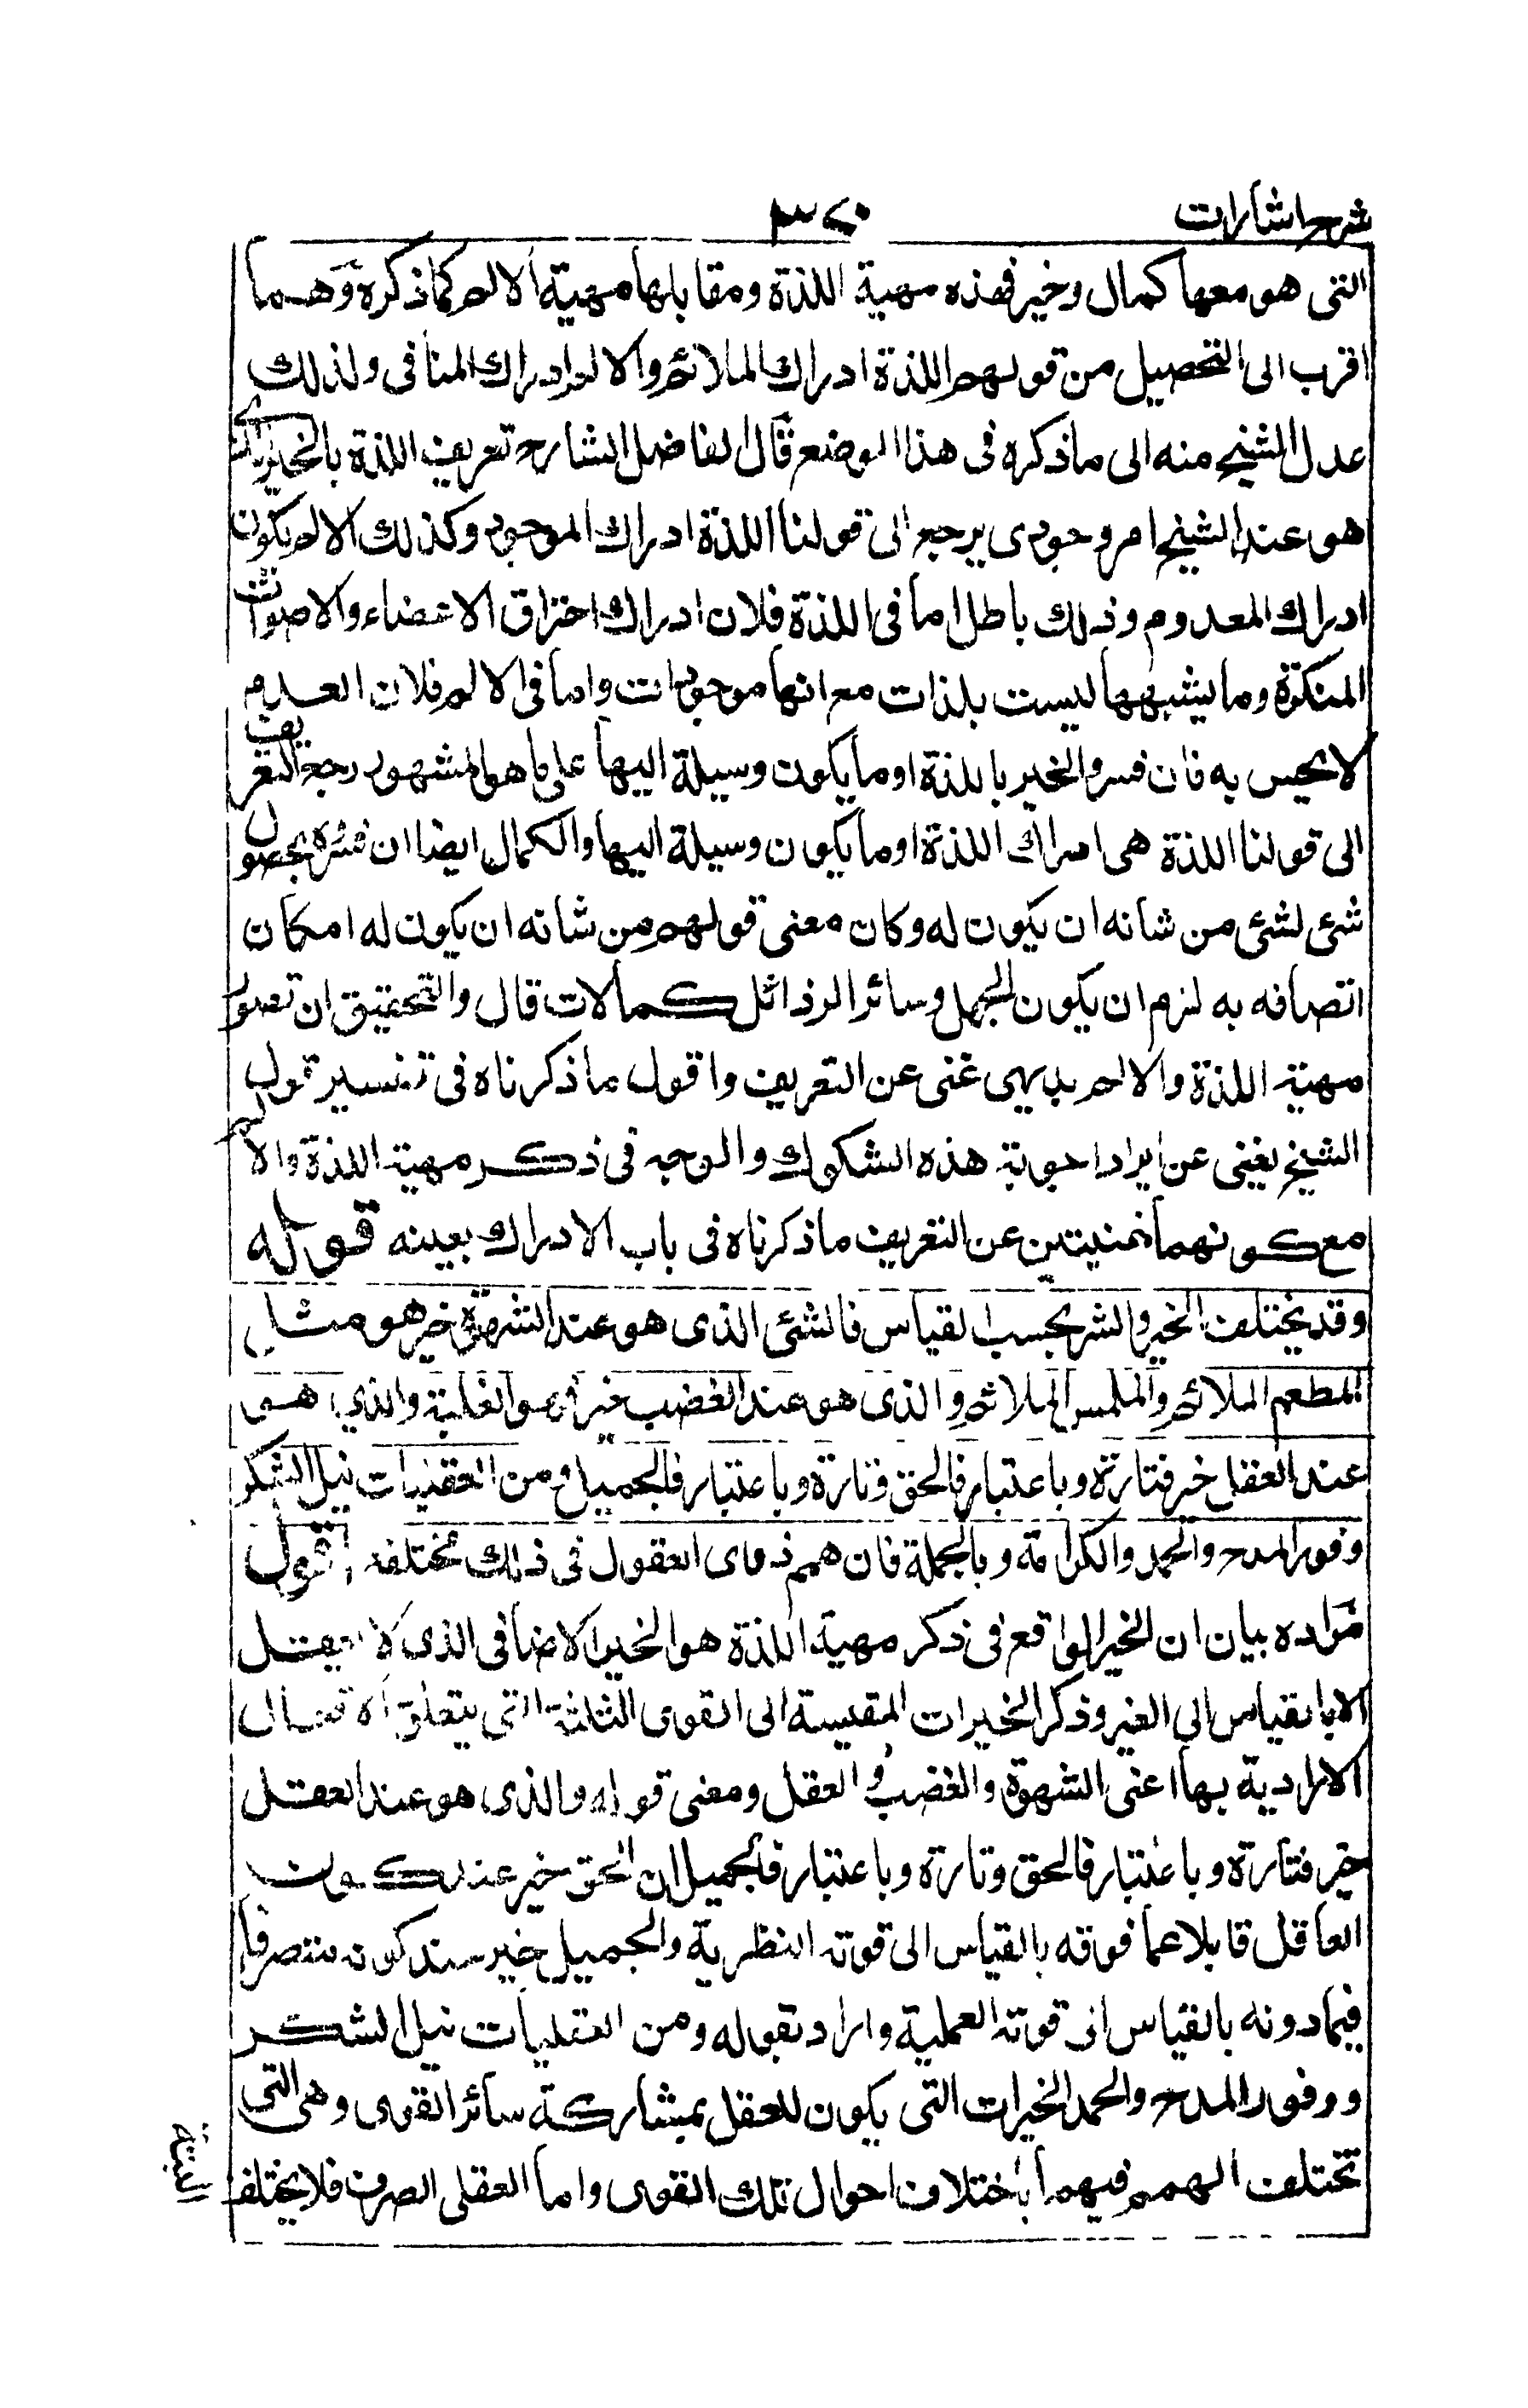 شرح اشارات
٣٧٠
التى هو معها كمال وخير فهذه مهية اللذة ومقابلها مهية الالم كما ذكره وهما
اقرب الى التحصيل من قولهم اللذة ادراك الملائم والالم ادراك المنافى ولذلك
عدل الشيخ منه الى ما ذكره فى هذا الموضع قال الفاضل الشارح تعريف اللذة بالخير الذى
هو عند الشيخ امر وجودى يرجع الى قولنا اللذة ادراك الموجود وكذلك الالم يكون
ادراك المعدوم وذلك باطل اما فى اللذة فلان ادراك احتراق الاعضاء والاصوات
المنكرة وما يشبهها ليست بلذات مع انها موجودات واما فى الالم فلان العدم
لا يحس به فان فسر والخير باللذة او ما يكون وسيلة اليها على ما هو المشهور رجع التعريف
الى قولنا اللذة هى ادراك اللذة او ما يكون وسيلة اليها والكمال ايضا ان فسره بحصول
شئ لشئ من شانه ان يكون له وكان معنى قولهم من شانه ان يكون له امكان
اتصافه به لزم ان يكون الجهل وسائر الرذائل كمالات قال والتحقيق ان تصور
مهية اللذة والالم بديهى غنى عن التعريف واقول ما ذكرناه فى تفسير قول
الشيخ يغنى عن ايراد اجوبة هذه الشكوك والوجه فى ذكر مهية اللذة والالم
مع كونهما غنيتين عن التعريف ما ذكرناه فى باب الادراك بعينه قوله
وقد يختلف الخير والشر بحسب القياس فالشئ الذى هو عند الشهوة خير هو مثل
المطعم الملائم والملمس الملائم والذى هو عند الغضب خير فهو الغلبة والذى هو
عند العقل خير فتارة وباعتبار فالحق وتارة وباعتبار فالجميل ومن العقليات نيل الشكر
وفور المدح والحمد والكرامة وبالجملة فان همم ذوى العقول فى ذلك مختلفه اقول
مراده بيان ان الخير الواقع فى ذكر مهية اللذة هو الخير الاضافى الذى لا يعقل
الا بالقياس الى الغير وذكر الخيرات المقيسة الى القوى الثلثة التى يتعلق الافعال
الارادية بها اعنى الشهوة والغضب والعقل ومعنى قوله والذى هو عند العقل
خير فتارة وباعتبار فالحق وتارة وباعتبار فالجميل ان الحق خير عند كون
العاقل قابلا عما فوقه بالقياس الى قوته النظرية والجميل خير عند كونه متصرفا
فيما دونه بالقياس الى قوته العملية واراد بقوله ومن العقليات نيل الشكر
ووفور المدح والحمد الخيرات التى يكون للعقل بمشاركة سائر القوى وهى التى
تختلف الهمم فيهما باختلاف احوال تلك القوى واما العقلى الصرف فلا يختلف
البتة